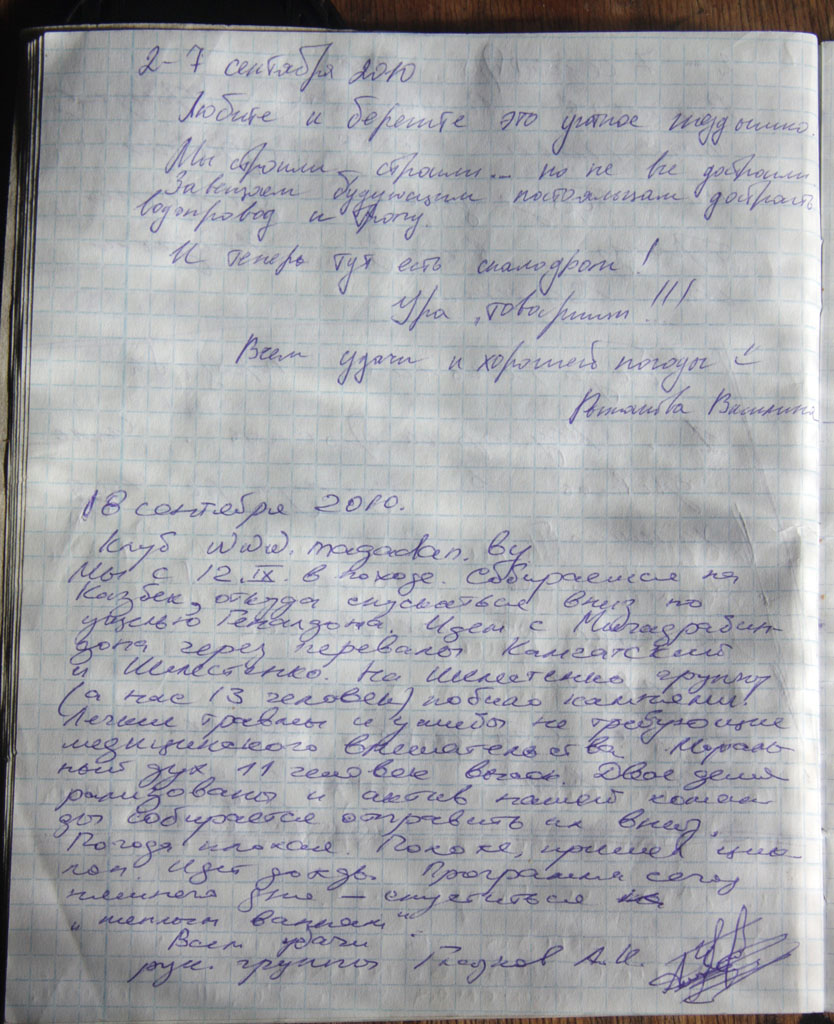 2-7 сентября 2010
Любите и берегите это уютное гнёздышко.
Мы строили – строили... но не все достроили
Завещаем будующим постояльцам достроить
водопровод и тропу.
И теперь тут есть скалодром!
Ура, товарищи!!!
Всем удачи и хорошей погоды
18 сентября 2010.
Клуб www.magadan.by
Мы с 12.IX. в походе. Собираемся на
Казбек, откуда спускаться вниз по
ущелью Геналдона. Идем с Мидаграбин-
дона через перевалы
и Шелестенко. На Шелестенко группу
(а нас 13 человек) побило камнями.
Легкие травмы и ушибы не требующие
медицинского вмешательства. Мораль-
ный дух 11 человек высок. Двое демо
рализованы и актив нашей коман-
ды собирается отправить их вниз.
Погода плохая. Похоже, пришел цик-
лон. Идет дождь. Программа сегод
няшнего дня – спуститься
"теплым ваннам".
Всем удачи
рук. группы Гладков А.И.